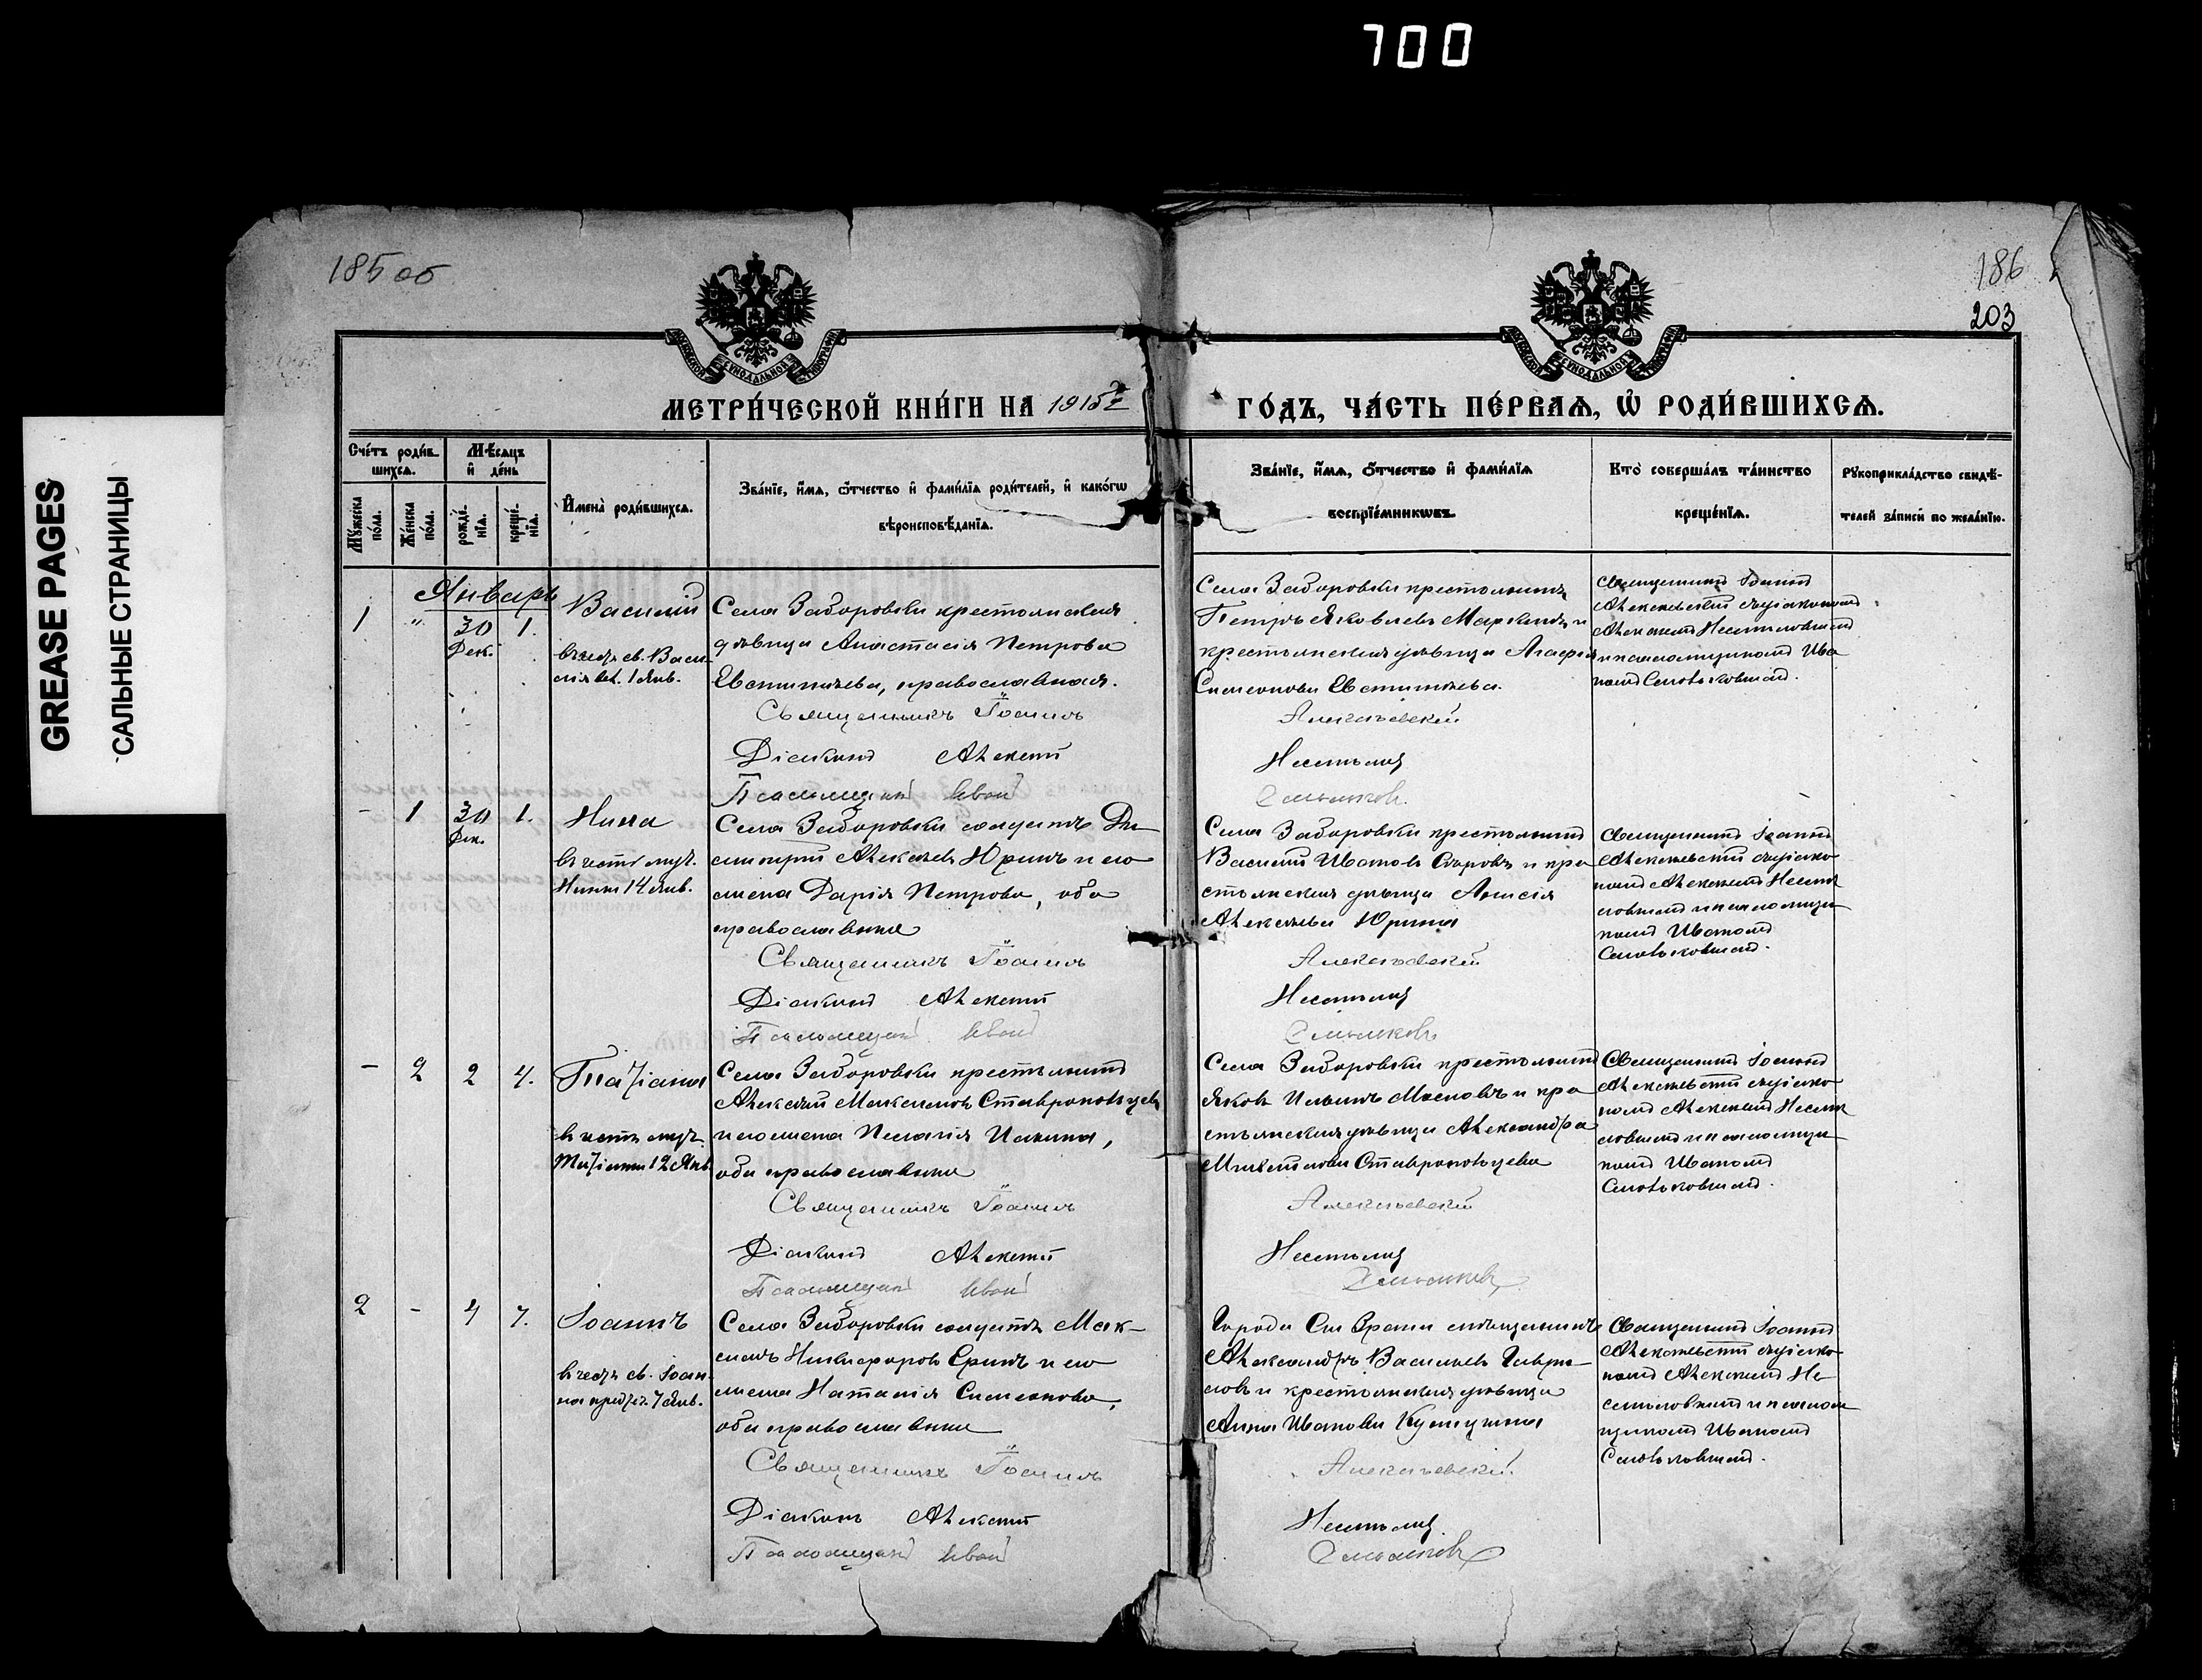 700
GREASE PAGES
САЛЬНЫЕ СТРАНИЦЫ
185 об
186
203
МЕТРИ́ЧЕСКОЙ КНИ́ГИ НА 1915й
ГО́ДЪ, ЧА́СТЬ ПЕ́РВАЯ, Ѿ РОДИ́ВШИХСЯ.
Сче́тъ роди́в-
шихся.
Мѣсяцъ
и де́нь
Му́жеска по́ла.
Же́нска по́ла.
рожде́нїя.
креще́нїя.
Имена̀ роди́вшихся.
Зва́нїе, и́мя, ѻ́тчество и фами́лїя роди́телей, и како́гѡ
вѣроисповѣ́данїя.
Зва́нїе, и́мя, ѻ́тчество и фами́лїя
воспрїе́мникѡвъ.
Кто̀ соверша́лъ та́инство
креще́нїя.
Рукоприкла́дство свидѣ́-
телей за́писи по жела́нїю.
Январь
1 " 30 1.
Дек.
Василий
въ честь св. Васи-
лія вел. 1 Янв.
Села Заборовки крестьянская
дѣвица Анастасія Петрова
Евстигнѣева, православная.
Священникъ Іоаннъ
Діаконъ Алексій
Псаломщикъ Иван
Села Заборовки крестьянинъ
Петръ Яковлевъ Маркинъ и
крестьянская дѣвица Агафія
Симеонова Евстигнѣева.
Алексѣевскій
Смольковъ.
Священникъ Іоаннъ
Алексѣевскій съ діакономъ
и псаломщикомъ Ива-
номъ Смольковымъ.
- 1 30 1.
Дек.
Нина
въ честь муч.
Нины 14 Янв.
Села Заборовки солдатъ Ди-
митрій Алексѣевъ Юринъ и его
жена Дарія Петрова, оба
православные
Священникъ Іоаннъ
Діаконъ Алексій
Псаломщикъ Иван
Села Заборовки крестьянинъ
Василий Ивановъ и кре-
стьянская дѣвица Анисія
Алексѣева Юрина
Алексѣевскій
Смольковъ
Священникъ Іоаннъ
Алексѣевскій съ діако-
номъ Алексіемъ
и псаломщи-
комъ Иваномъ
Смольковымъ.
- 2 2 4.
Татіана
въ честь муч.
Татіаны 12 Янв.
Села Заборовки крестьянинъ
Алексѣй Максимовъ Ставропольцевъ
и его жена Пелагія Ильина,
оба православные
Священникъ Іоаннъ
Діаконъ Алексій
Псаломщикъ Иван
Села Заборовки крестьянинъ
Яковъ Ильинъ Масловъ и кре-
стьянская дѣвица Александра
Михайлова Ставропольцева
Алексѣевскій
Смольковъ
Священникъ Іоаннъ
Алексѣевскій съ діако-
номъ Алексіемъ
и псаломщи-
комъ Иваномъ
Смольковымъ.
2 - 4 7.
Іоаннъ
въ честь св. Іоан-
на предтеч. 7 Янв.
Села Заборовки солдатъ Мак-
симъ Никифоровъ Еринъ и его
жена Наталія Симеонова,
оба православные
Священникъ Іоаннъ
Діаконъ Алексій
Псаломщикъ Иван
Города Сызрани мѣщанинъ
Александръ Васильевъ Гаври-
ловъ и крестьянская дѣвица
Анна Иванова
Алексѣевскій.
Смольковъ
Священникъ Іоаннъ
Алексѣевскій съ діако-
номъ Алексіемъ Не-
и псалом-
щикомъ Иваномъ
Смольковымъ.